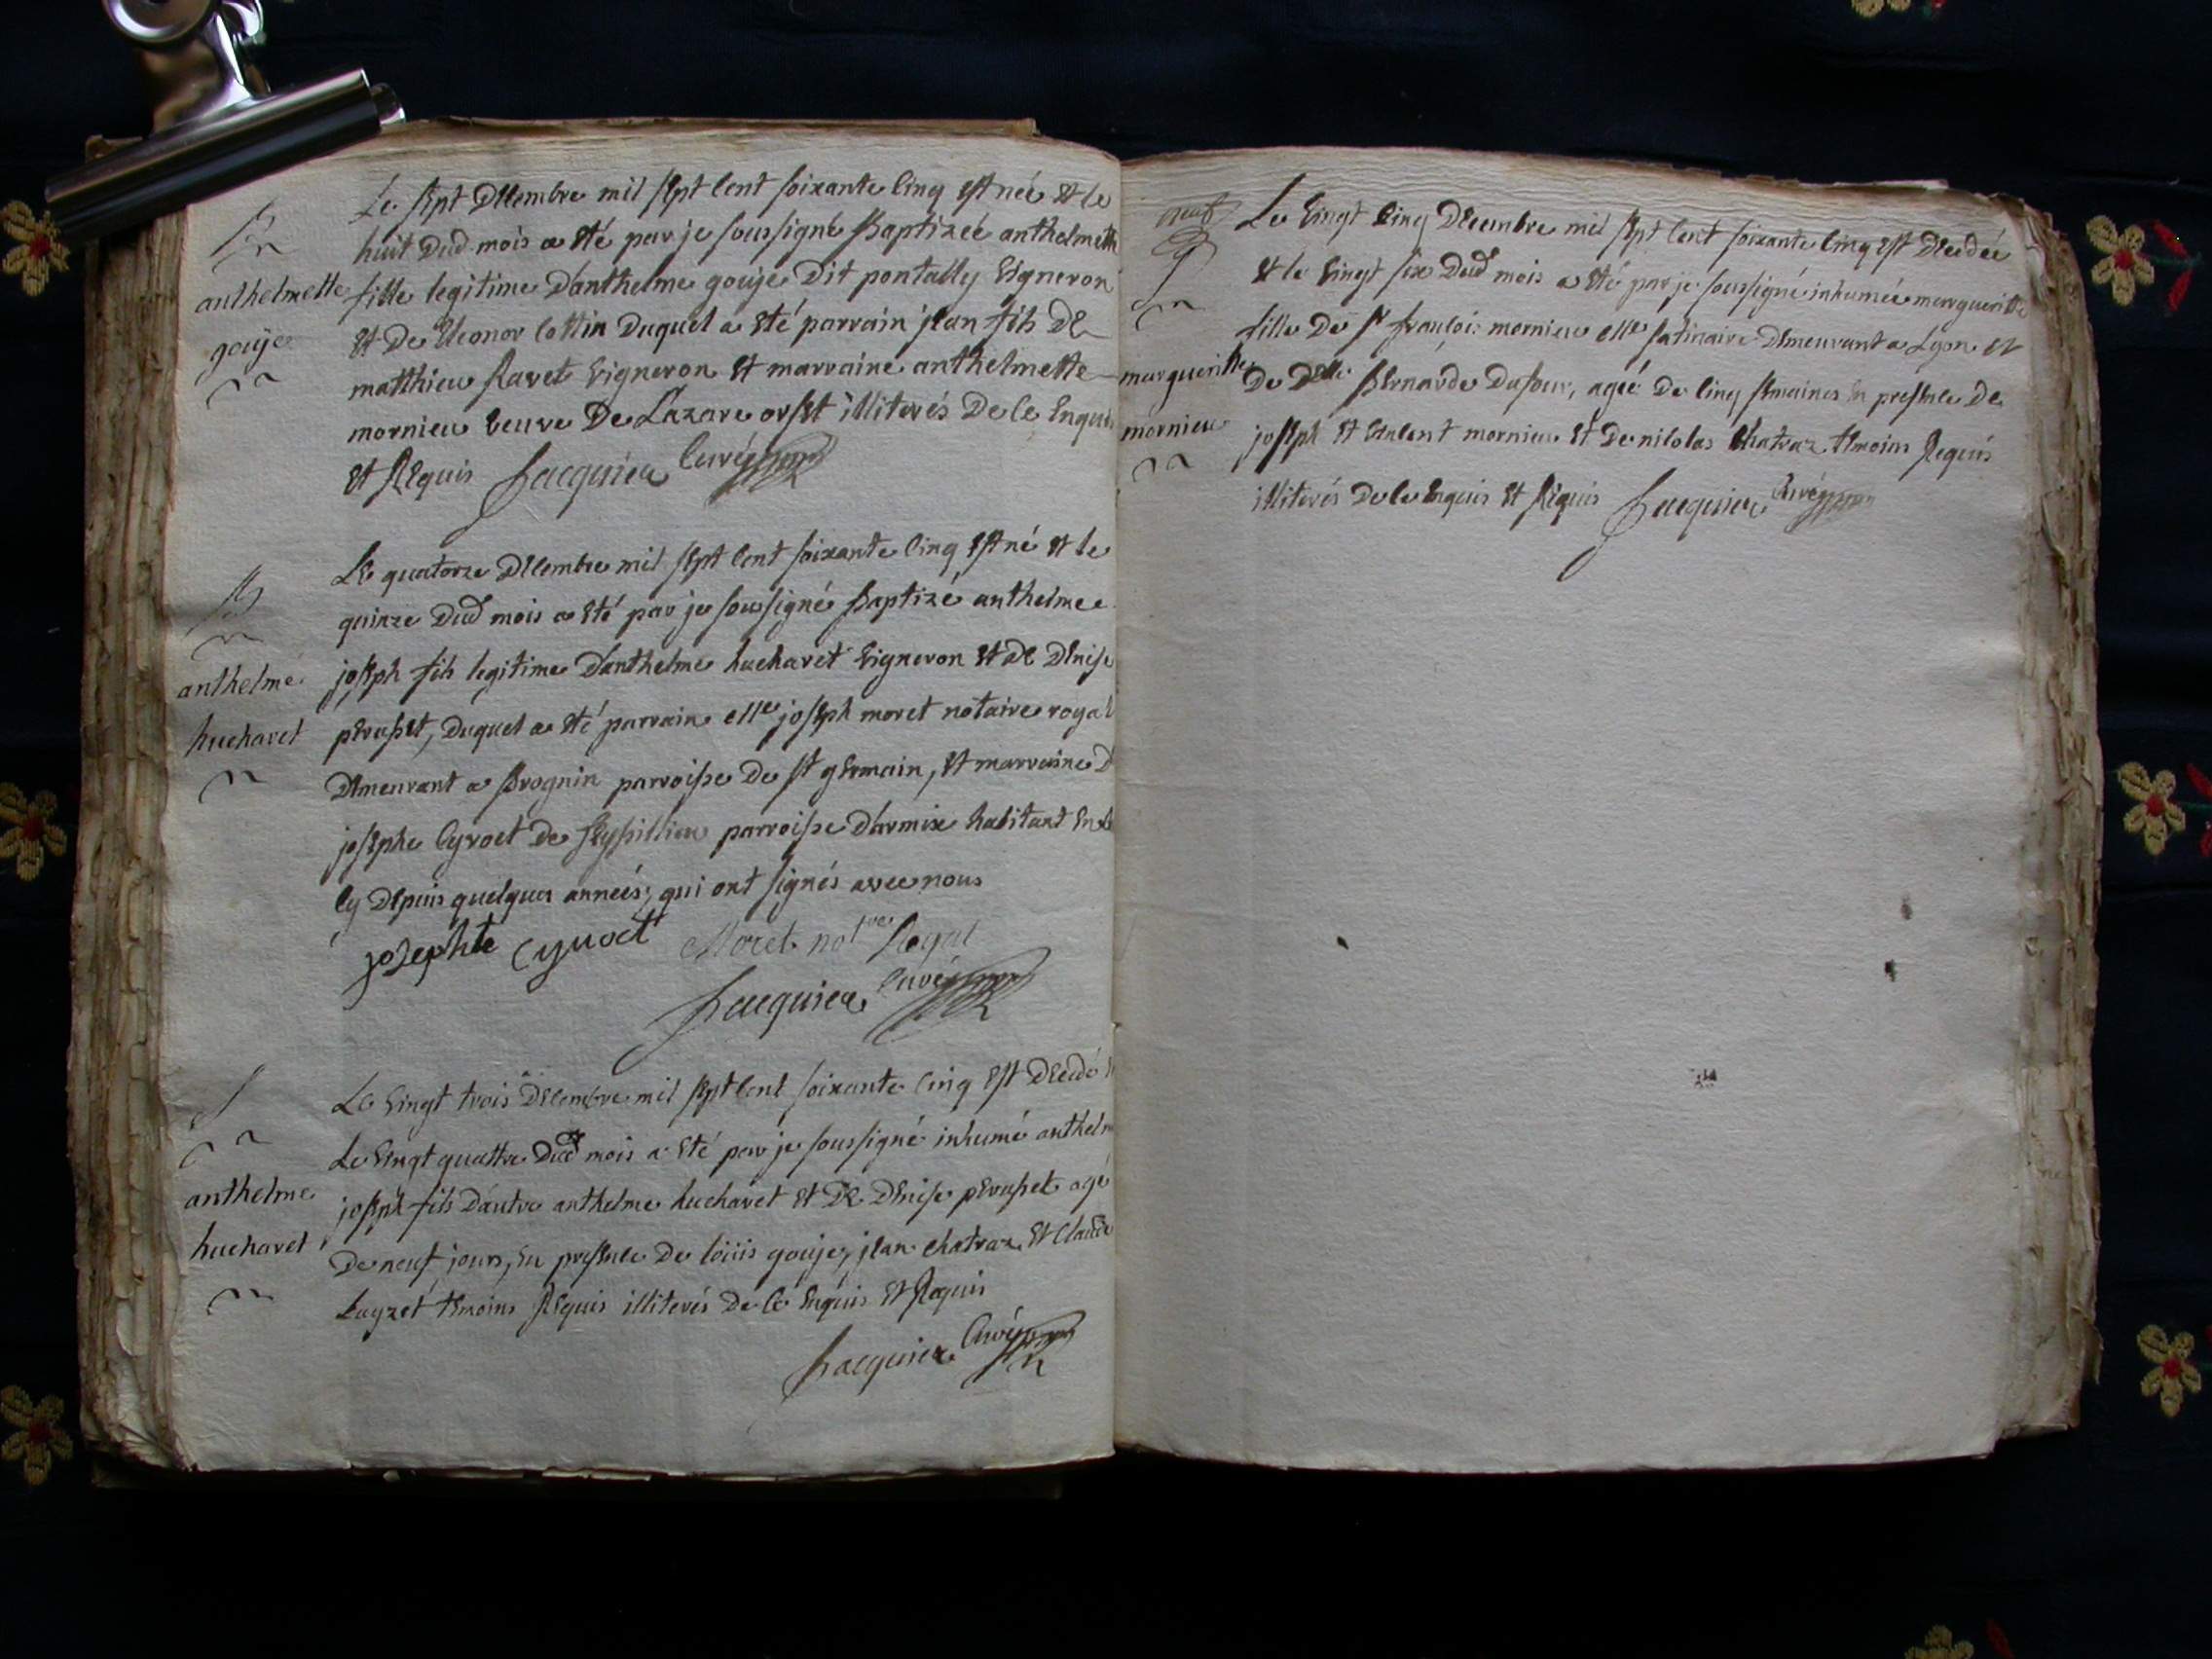 Le sept decembre mil sept cent soixante cinq est neé et le
huit dud. mois a eté par je soussigné Baptizeé anthelmette
anthelmette
gouje
fille legitime d'anthelme gouje dit pontally vigneron
et de eleonor cottin duquel a eté parrain jean fils de
matthieu Ravet vigneron et marraine anthelmette
mornieu veuve de Lazare orset illiterés de ce enquis
et Requis Jacquier Curé
Le quatorze decembre mil sept cent soixante cinq est né et le
quinze dud mois a eté par je soussigné Baptizé anthelme
anthelme
huchavet
joseph fils legitime d'anthelme huchavet vigneron et de denise
peruset, duquel a eté parrain elle joseph moret notaire royal
demeurant a Brognin parroisse de st germain, et marraine d
josephe Cyvoct de seyssillieu parroisse d'armix habitant en ce
cy depuis quelques anneés, qui ont signés avec nous
josephte Cyvoct Moret notre Royal
Jacquier Curé
Le vingt trois decembre mil sept cent soixante cinq est decedé
Le vingt quattre dud mois a eté par je soussigné inhumé anthelm
anthelme
huchavet
joseph fils d'autre anthelme huchavet et de denise peruset agé
de neuf jours, en presence de loüis gouje, jean chatraz, et Claude
Luyzet temoins Requis illiterés de ce enquis et Requis
Jacquier Curé
neuf
Le vingt cinq decembre mil sept cent soixante cinq est decedeé
et le vingt six dud mois a eté par je soussigné inhumeé margueritte
margueritte
mornieu
fille de sr françois mornieu elle satinaire demeurant a Lyon et
de delle Bernarde Dufour, ageé de cinq semaines en presence de
joseph et vincent mornieu et de nicolas Chatraz temoins Requis
illiterés de ce enquis et Requis Jacquier Curé